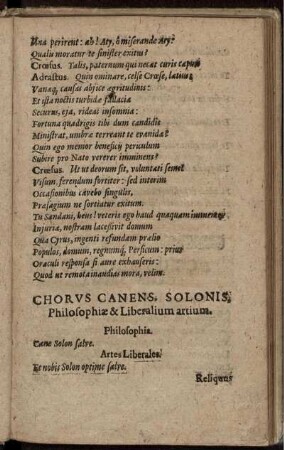 Una perirent: ah! Aty, ô miserande Aty?
Qualu moratur te sinister exitus?
Crœsus. Talis, paternum qui necat curis caput
Adrastus. Quin eminare, celse Crœse, latius,
Vanaq, causas abjice ægritudinis:
Et ista noctis turbidæ fallacia
Securus, eja, rideas insomnia:
Fortuna quadrigis tibi dum candidis
Ministrat, umbræ terreant te evanidæ?
Quin ego memor beneficij periculum
Subire pro Nato vererer imminens?
Crœsus. Ut ut deorum sit, voluntati semet
Visum, ferendum fortiter: sed interim
Occasionibus cavebo singulis,
Præsagium ne sortiatur exitum.
Tu Sandani, heus! veteris ego haud quaquam immemor
Injuria, nostram lacessivit domum
Qua Cyrus, ingenti refundam prælio
Populos, domum, regnumq, Persicum: prius
Oraculi responsa si aure exhauseris:
Quod ut remota inaudias mora, volim.
CHORVS CANENS. SOLONIS,
Philosophiæ & Liberalium artium.
Philosophia.
Cane Solon salve.
Artes Liberales.
Et nobis Solon optime salve.
Reliquus